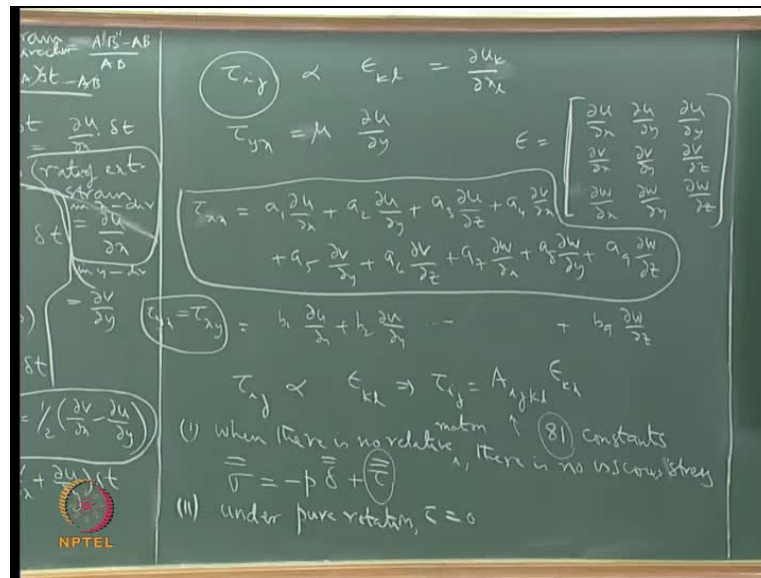 A'B''-AB
AB
)δt - AB
δt = ∂u/∂x . δt
(rate of ext-
strain
in x-dir
δt = ∂u/∂x
in y-dir
= ∂v/∂y
δt
= 1/2 (∂v/∂x - ∂u/∂y)
+ ∂u/∂y) δt
τ_ij ∝ ε_kl = ∂u_k/∂x_l
τ_yx = μ ∂u/∂y
ε = [∂u/∂x ∂u/∂y ∂u/∂y
∂v/∂x ∂v/∂y ∂v/∂z
∂w/∂x ∂w/∂y ∂w/∂z]
τ_xx = a_1 ∂u/∂x + a_2 ∂u/∂y + a_3 ∂u/∂z + a_4 ∂v/∂x
+ a_5 ∂v/∂y + a_6 ∂v/∂z + a_7 ∂w/∂x + a_8 ∂w/∂y + a_9 ∂w/∂z
τ_yx = τ_xy = b_1 ∂u/∂x + b_2 ∂u/∂y ... + b_9 ∂w/∂z
τ_ij ∝ ε_kl ⇒ τ_ij = A_ijkl ε_kl
↑ 81 constants
(i) when there is no relative motion, there is no viscous stress
σ = -p δ + τ
(ii) under pure rotation, τ = 0
NPTEL